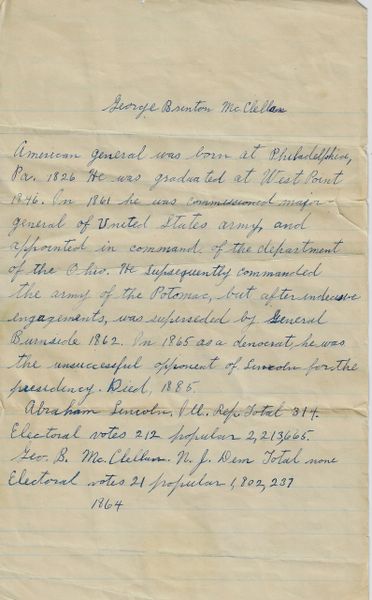 George Brinton McClellan
American general was born at Philadelphia,
Pa. 1826 He was graduated at West Point
1846. In 1861 he was commissioned major
general of United States army, and
appointed in command of the department
of the Ohio. He supsequently commanded
the army of the Potomac, but after indecisive
engagements, was superseded by General
Burnside 1862. In 1865 as a democrat he was
the unsuccessful opponent of Lincoln for the
presidency. Died, 1885.
Abraham Lincoln, Ill. Rep. Total 314.
Electoral votes 212 popular 2,213665.
Geo. B. McClellan. N. J. Dem Total none
Electoral votes 21 popular 1,802,237
1864